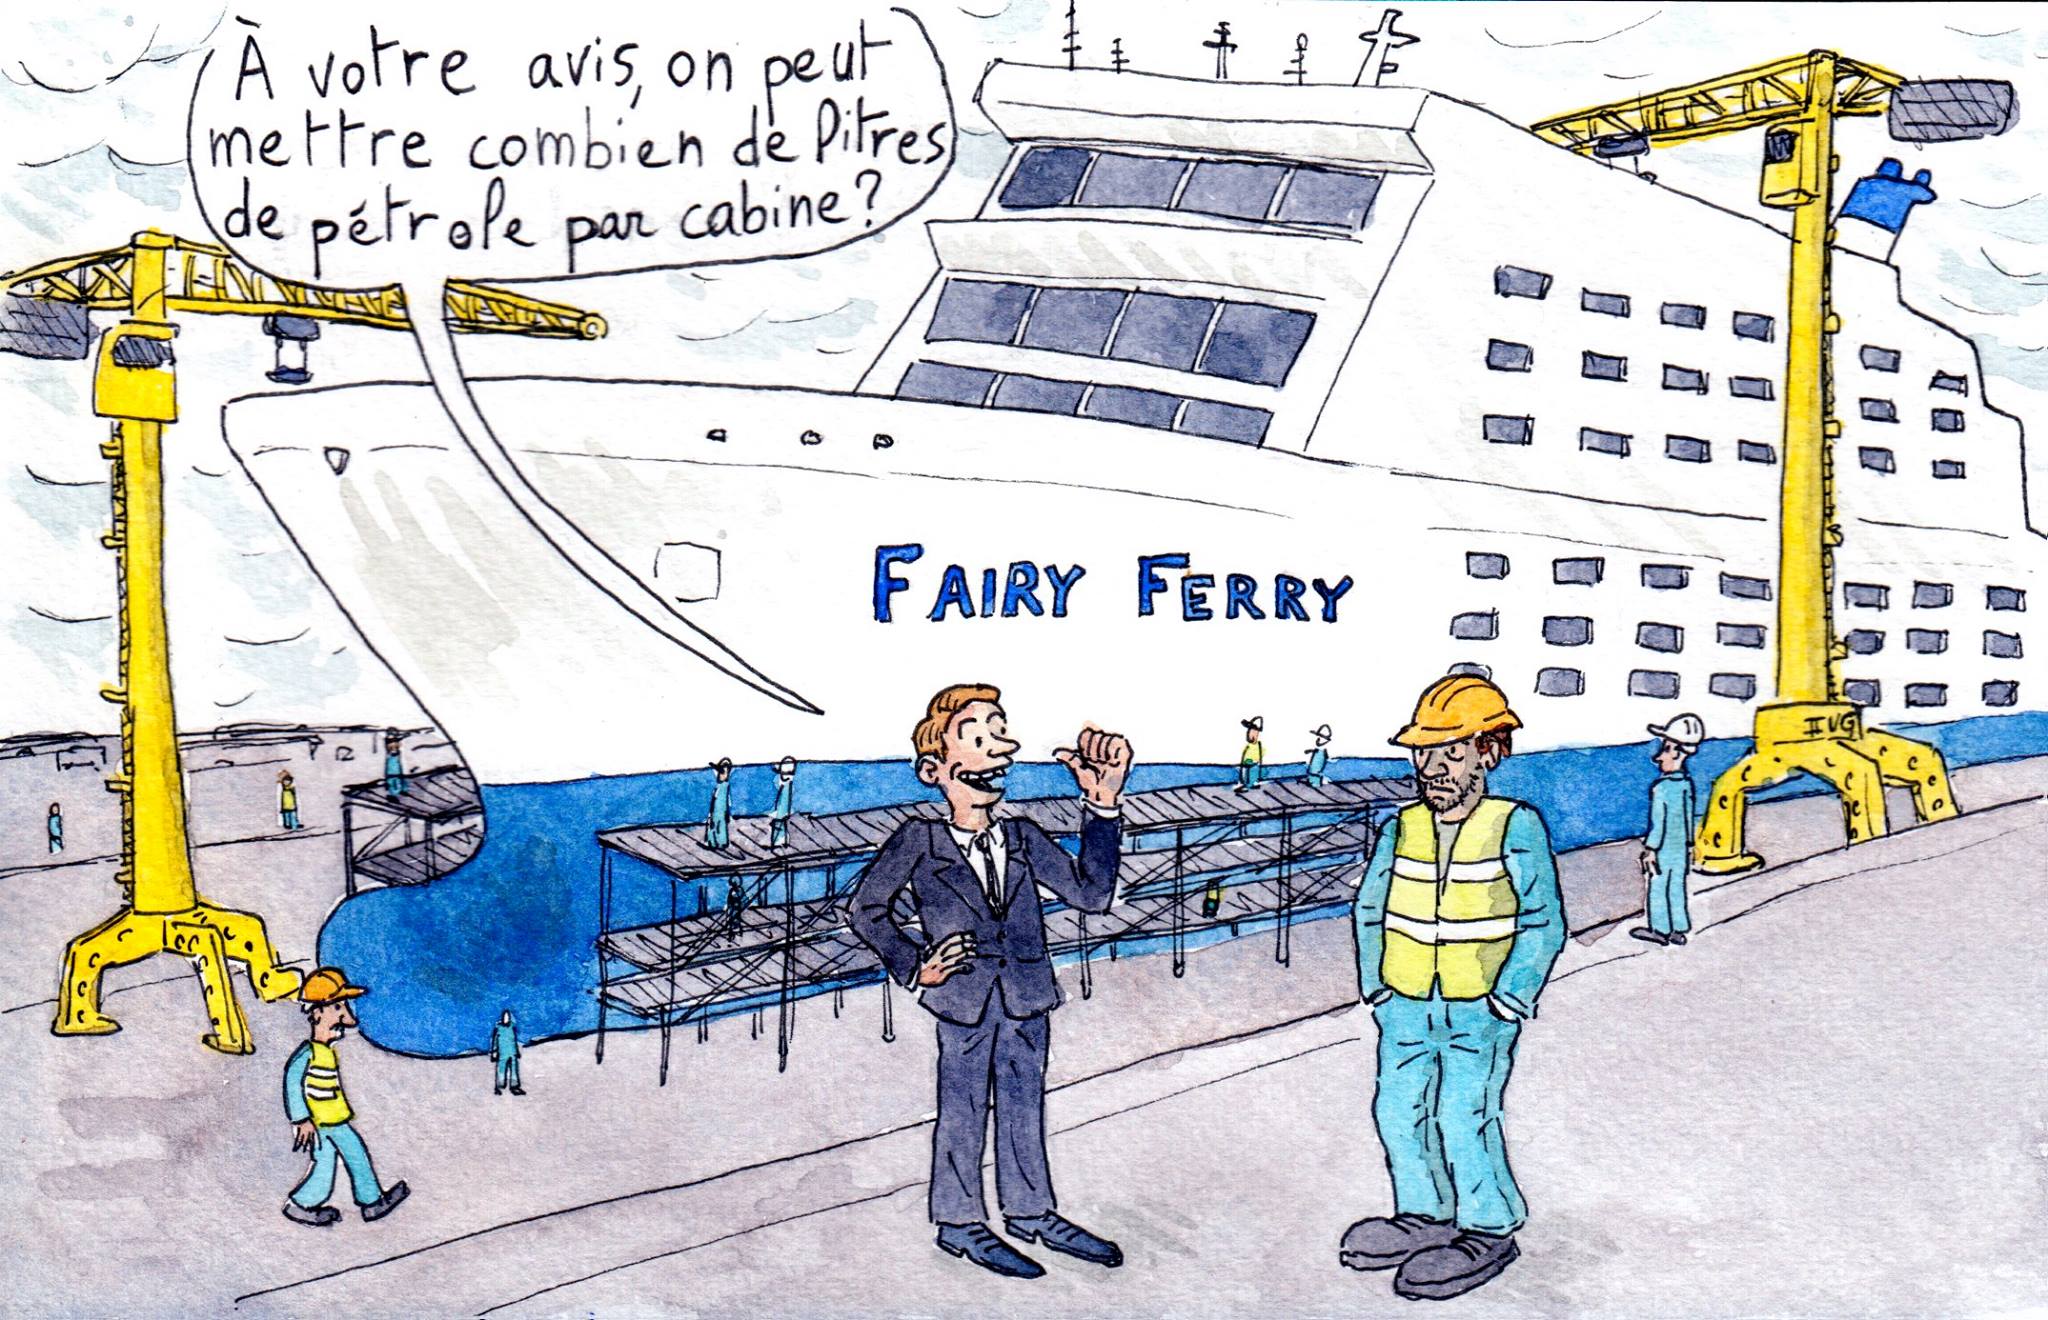 À votre avis, on peut
mettre combien de litres
de pétrole par cabine?
FAIRY FERRY